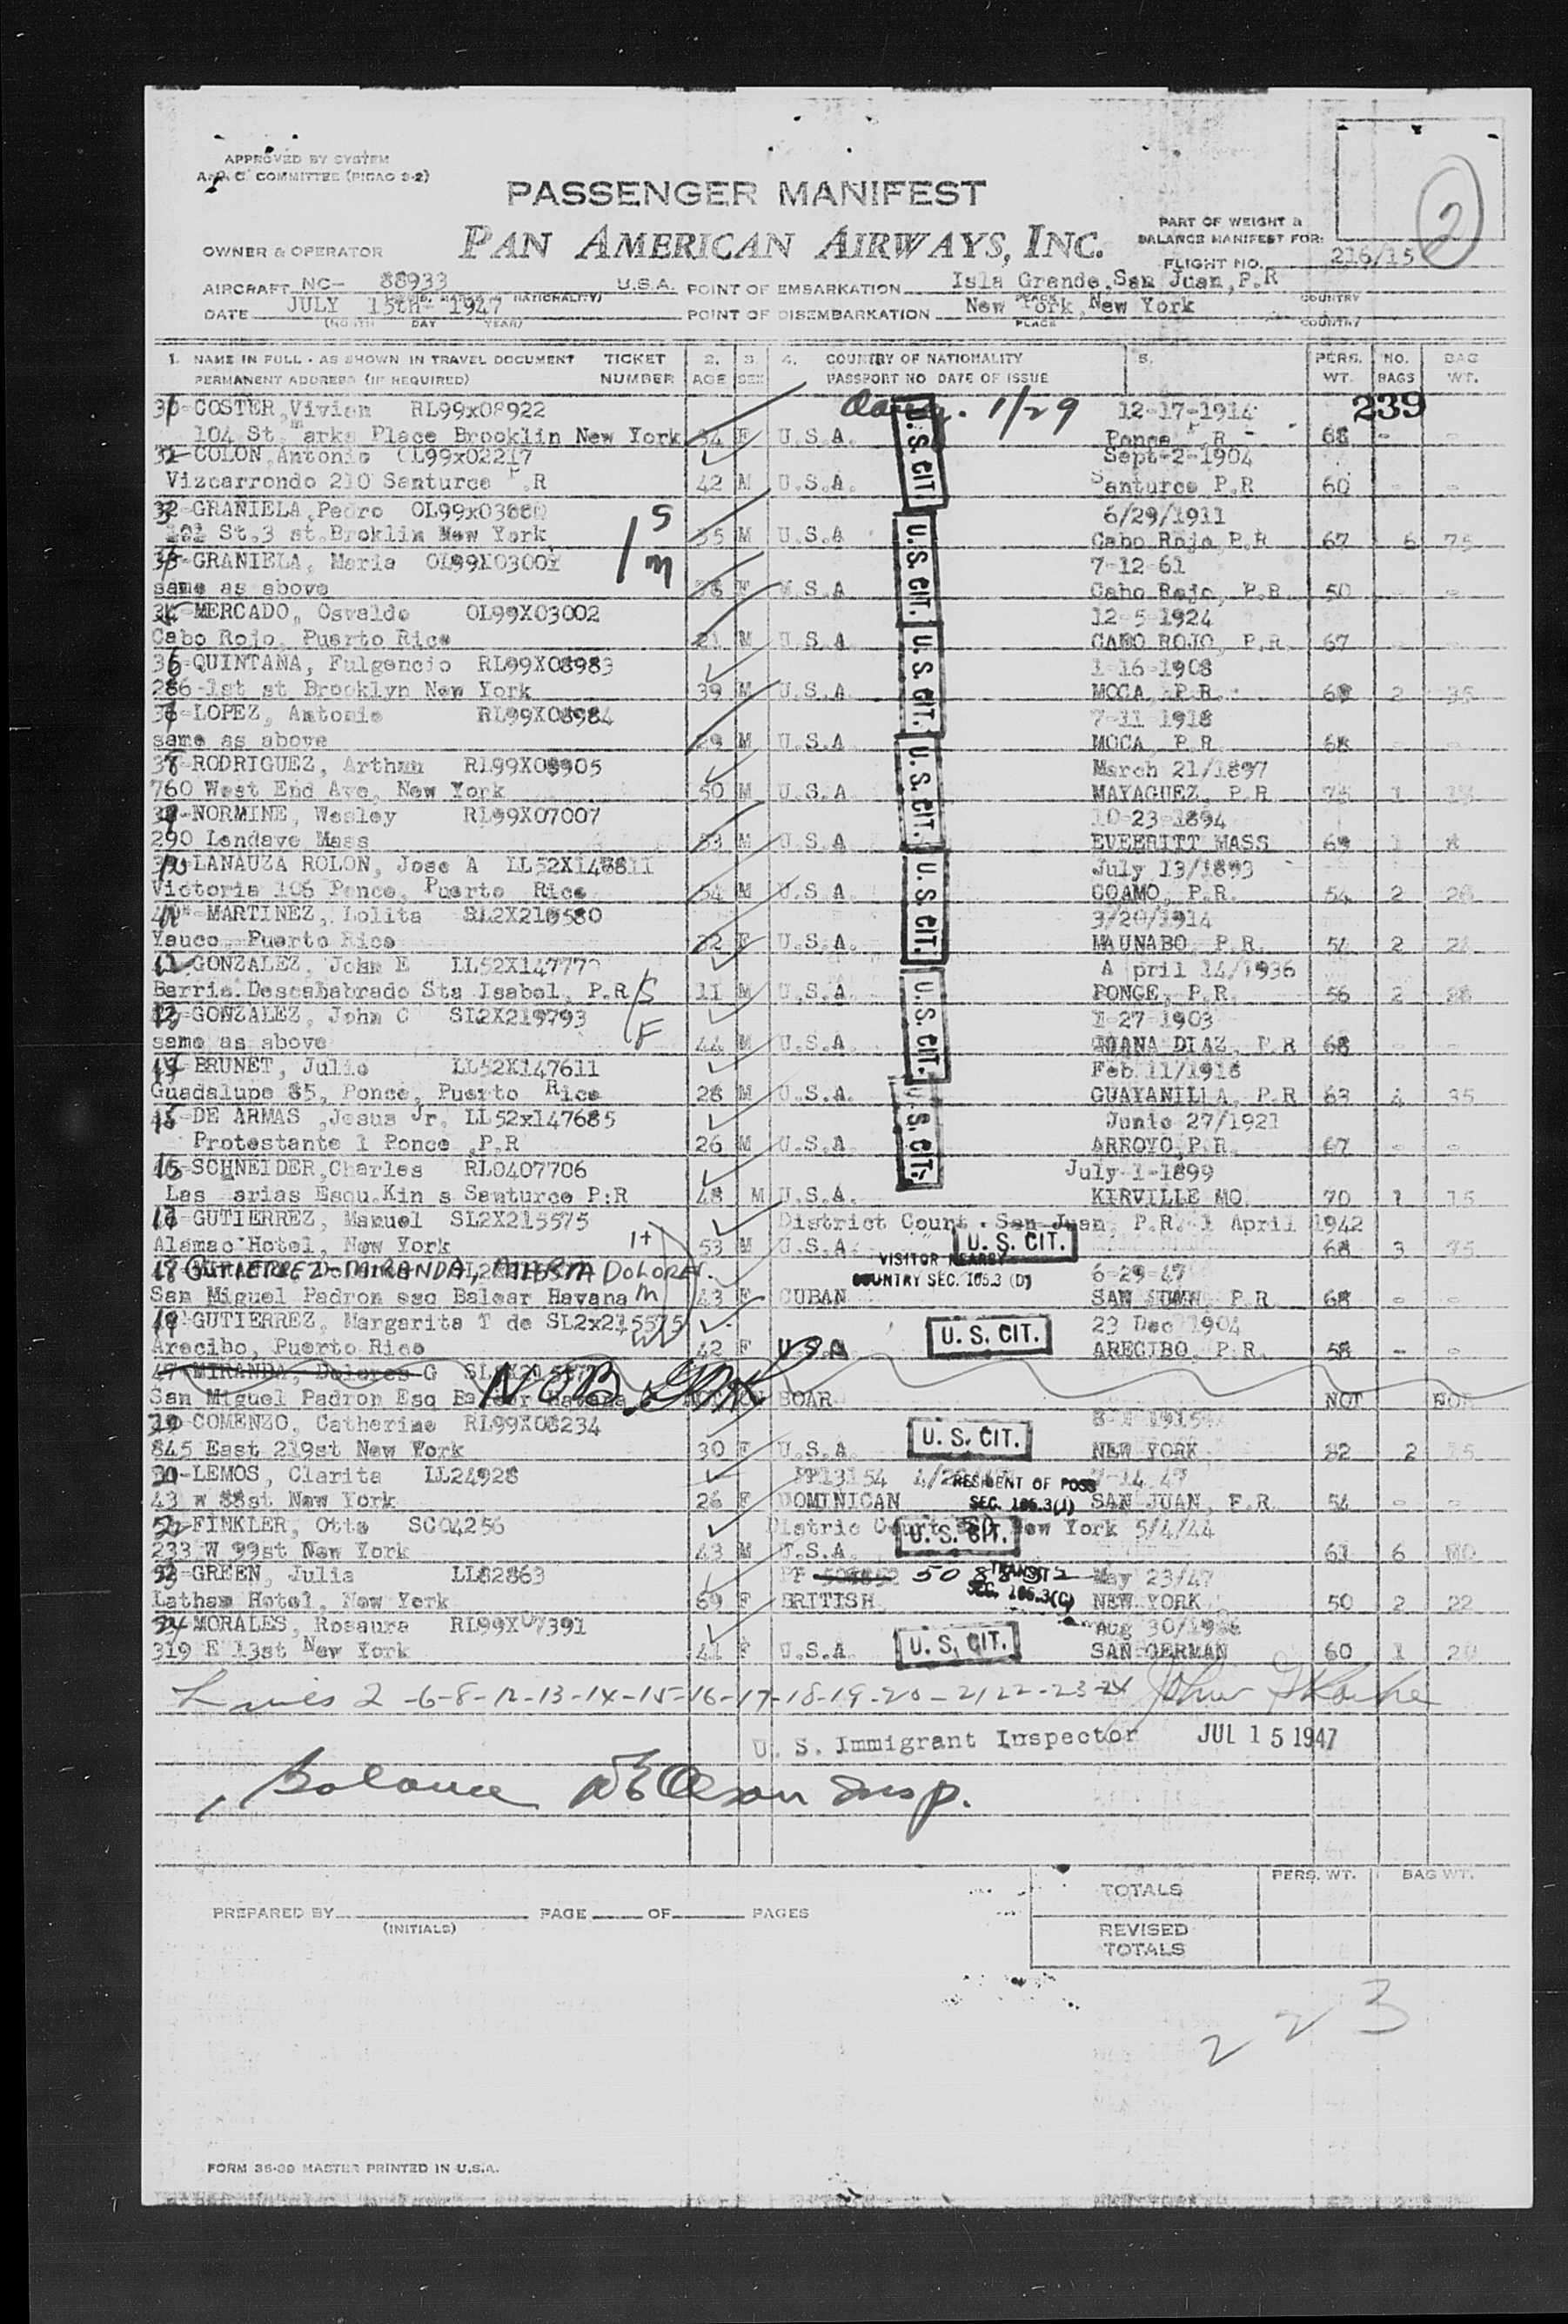 APPROVED BY SYSTEM
A.P.C. COMMITTEE (PICAO 9-2)
PASSENGER MANIFEST
2
OWNER & OPERATOR PAN AMERICAN AIRWAYS, INC.
PART OF WEIGHT &
BALANCE MANIFEST FOR:
FLIGHT NO. 216/15
AIRCRAFT NC- 88933 U.S.A. POINT OF EMBARKATION Isla Grande, San Juan, P.R
DATE JULY 15th- 1947 POINT OF DISEMBARKATION New York, New York
(MONTH DAY YEAR) PLACE COUNTRY
1. NAME IN FULL - AS SHOWN IN TRAVEL DOCUMENT TICKET 2. 3. 4. COUNTRY OF NATIONALITY 5. PERS. NO. BAG
PERMANENT ADDRESS (IF REQUIRED) NUMBER AGE SEX PASSPORT NO DATE OF ISSUE WT. BAGS WT.
COSTER, Vivian RL99x08922 1/29 12-17-1914 239
104 St. marks Place Brooklin New York 34 F U.S.A. Ponce P.R - 68 - -
COLON, Antonio OL99x02217 Sept-2-1904
Vizcarrondo 210 Santurce P.R 42 M U.S.A. Santurce P.R 60 - -
GRANIELA, Pedro S 6/29/1911
St. 3 st. Broklin New York 35 M U.S.A Cabo Rojo, P.R 67 6 75
GRANIELA, Maria m 7-12-61
same as above F U.S.A Cabo Rojo, P.R. 50 - -
MERCADO, Osvaldo OL99X03002 12-5-1924
Cabo Rojo, Puerto Rico 21 M U.S.A CABO ROJO, P.R. 67 - -
QUINTANA, Fulgencio RL99X08983 1-16-1908
286-1st st Brooklyn New York 39 M U.S.A MOCA, P.R. 2 35
LOPEZ, Antonio RL99X08984 7-11-1918
same as above 29 M U.S.A MOCA, P.R. 68 - -
RODRIGUEZ, Arthuu March 21/1897
760 West End Ave, New York 50 M U.S.A MAYAGUEZ, P.R 1
NORMINE, Wesley RL99X07007 10-23-1894
290 Lendave Mass 53 M U.S.A EVERRITT MASS 1
LANAUZA ROLON, Jose A July 13/1893
Victoria 106 Ponce, Puerto Rico 54 M U.S.A. COAMO, P.R. 54 2 28
MARTINEZ, Lolita 3/20/1914
Yauco, Puerto Rico 32 F U.S.A. MAUNABO, P.R. 54 2
GONZALEZ, John E April 14/1936
Barrio Descalabrado Sta Isabel, P.R S 11 M U.S.A PONCE, P.R. 56 2 28
GONZALEZ, John C SL2X219793 F 1-27-1903
same as above 44 M U.S.A JUANA DIAZ, P.R 68 - -
BRUNET, Julio LL52X147611 Feb 11/1918
Guadalupe 85, Ponce, Puerto Rico 28 M U.S.A. GUAYANILLA, P.R 63 4 35
DE ARMAS, Jesus Jr. LL52x147685 Junio 27/1921
Protestante 1 Ponce, P.R 26 M U.S.A. ARROYO, P.R. 67 - -
SCHNEIDER, Charles RL0407706 July-1-1899
Las arias Esqu. Kin s Santurce P:R 48 M U.S.A. KIRVILLE MO. 70 1 15
GUTIERREZ, Manuel SL2X215575 District Court - San Juan, P.R. 1 April 1942
Alamac Hotel, New York 1+ 53 M U.S.A. U. S. CIT. 68 3 75
GUTIERREZ-MIRANDA, MARIA DOLORES. VISITOR NEARBY 6-29-47
COUNTRY SEC. 165.3 (D)
San Miguel Padron esq Balear Havana m 43 F CUBAN SAN JUAN, P.R 68 - -
GUTIERREZ, Margarita T de SL2x215575 23 Dec 1904
Arecibo, Puerto Rico 42 F U.S.A U. S. CIT. ARECIBO, P.R. 58 - -
MIRANDA, Dolores G N O B
San Miguel Padron Esq Balear Havana NOT ON BOAR NOT NOR
COMENZO, Catherine RL99X08234
845 East 219st New York 30 F U.S.A U. S. CIT. NEW YORK 82 2
LEMOS, Clarita LL24928 PP13154 RESIDENT OF POSS 7-14-47
43 w 88st New York 26 F DOMINICAN SEC. 165.3(J) SAN JUAN, P.R. 54 - -
FINKLER, Otto SC04256 Distric Court New York 5/4/44
233 W 99st New York 43 M U.S.A. U. S. CIT. 61 6
GREEN, Julia LL82863 PP TRANSIT May 23/47
Latham Hotel, New York 69 F BRITISH SEC. 165.3(C) NEW YORK 50 2 22
MORALES, Rosaura RL99X07391 Aug 30/
319 E 13st New York 41 F U.S.A U. S. CIT. SAN GERMAN 60 1 20
U.S. CIT.
U.S. CIT.
U.S. CIT.
U.S. CIT.
U.S. CIT.
U.S. CIT.
U.S. CIT.
Lines 2-6-8-12-13-14-15-16-17-18-19-20-21 22-23-24
U. S. Immigrant Inspector JUL 15 1947
Balance Olson Insp.
TOTALS PERS. WT. BAG WT.
REVISED
TOTALS
PREPARED BY (INITIALS) PAGE OF PAGES
223
FORM 36-09 MASTER PRINTED IN U.S.A.